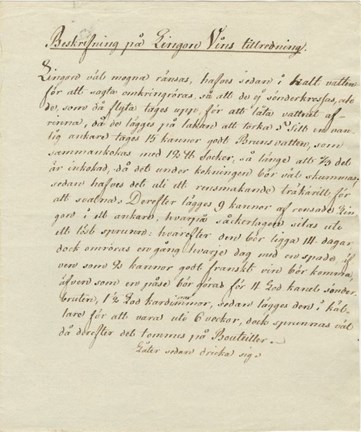 Beskrifning på Lingon Vins tillredning.
Lingon väl mogna ränsas, hafvas sedan i kallt vatten
för att sagta omkringröras, så att de ej sönderkrossas, ute
de, som då flyta tages upp, för att låta vattnet af-
rinna, då de lägges på lakan att torka. Till en van-
lig ankare tages 15 kannor godt Brunsvatten, som
sammankokas med 12 ℔ Socker, så länge att 1/3 del
är inkokad, då det under kokningen bör väl skummas,
sedan hafves det uti ett rensmakande träkäril för
att svalna. Derefter lägges 9 kannor af rensade Lin-
gon i ett ankare, hvarpå såckerlagen silas uti
ett löst sprund; hvarefter den bör ligga 14 dagar
dock omröras en gång hvarje dag med en spade, öf-
ver som 2 kannor godt franskt vin bör komma,
äfven som en påse bör föras för 1 Lod kanel sönder-
bruten, 1½ Lod kardemummor, sedan lägges den i käl-
lare för att vara uti 6 veckor, dock sprundas väl
då derefter det tommes på Bouteiller.
Låter sedan dricka sig.